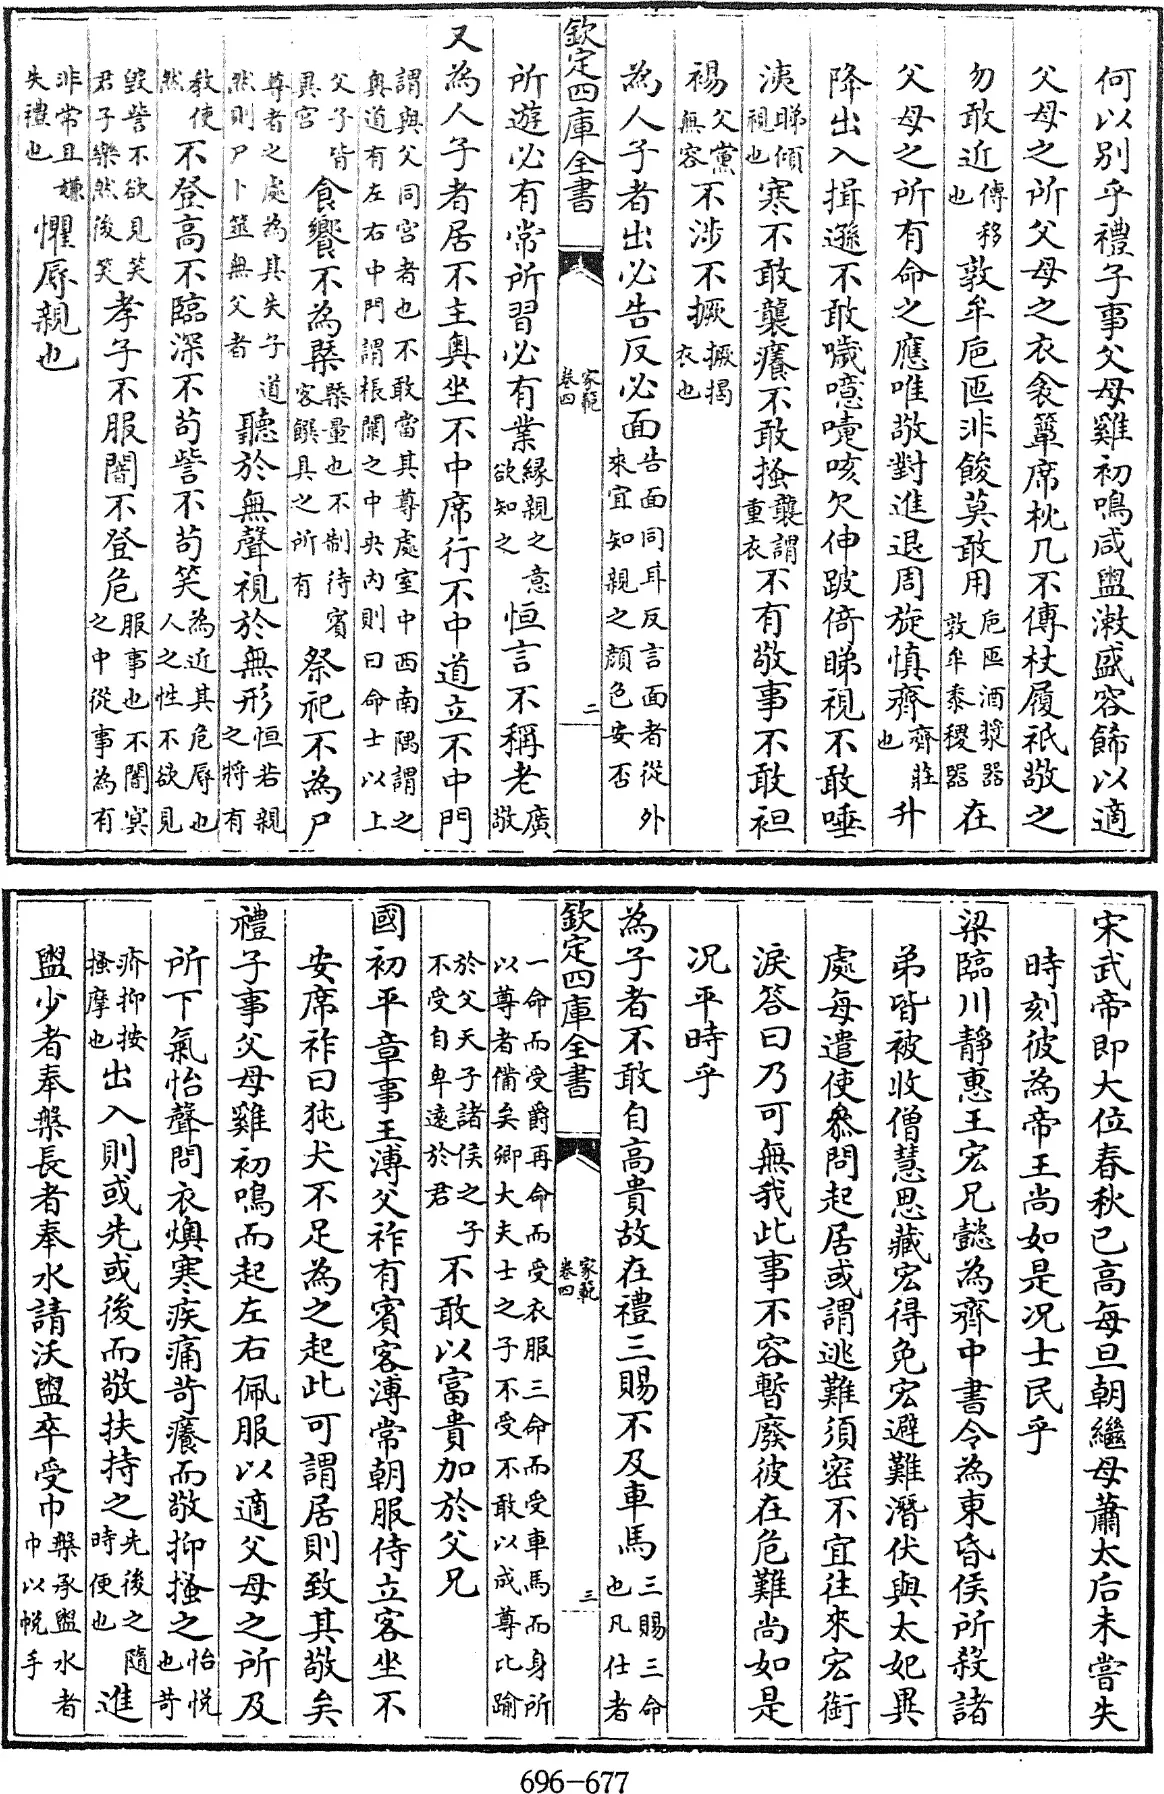 何以别乎禮子事父母雞初鳴咸盥漱盛容飾以適
父母之所父母之衣衾簟席枕几不傳杖履祇敬之
勿敢近傳移也敦牟卮匜非餕莫敢用卮匜酒漿器敦牟黍稷器在
父母之所有命之應唯敬對進退周旋慎齊齊莊也升
降出入揖遜不敢噦噫嚏咳欠伸跛倚睇視不敢唾
洟睇傾視也寒不敢襲癢不敢搔襲謂重衣不有敬事不敢袒
裼父黨無容不涉不撅撅揭衣也
為人子者出必告反必面告面同耳反言面者從外來宜知親之顔色安否
欽定四庫全書 家範卷四 二
所遊必有常所習必有業緣親之意欲知之恒言不稱老廣敬
又為人子者居不主奥坐不中席行不中道立不中門
謂與父同宮者也不敢當其尊處室中西南隅謂之奥道有左右中門謂棖闑之中央内則曰命士以上
父子皆異宮食饗不為槩槩量也不制待賓客饌具之所有祭祀不為尸
尊者之處為其失子道然則尸卜筮無父者聽於無聲視於無形恒若親之将有
教使然不登高不臨深不苟訾不苟笑為近其危辱也人之性不欲見
毀訾不欲見笑君子樂然後笑孝子不服闇不登危服事也不闇冥之中從事為有
非常且嫌失禮也懼辱親也
宋武帝即大位春秋已高每旦朝繼母蕭太后未嘗失
時刻彼為帝王尚如是况士民乎
梁臨川靜惠王宏兄懿為齊中書令為東昏侯所殺諸
弟皆被收僧慧思藏宏得免宏避難潛伏與太妃異
處每遣使叅問起居或謂逃難須密不宜往來宏銜
淚答曰乃可無我此事不容暫廢彼在危難尚如是
况平時乎
為子者不敢自高貴故在禮三賜不及車馬三賜三命也凡仕者
欽定四庫全書 家範卷四 三
一命而受爵再命而受衣服三命而受車馬而身所以尊者備矣卿大夫士之子不受不敢以成尊比踰
於父天子諸侯之子不受自卑遠於君不敢以富貴加於父兄
國初平章事王溥父祚有賓客溥常朝服侍立客坐不
安席祚曰㹠犬不足為之起此可謂居則致其敬矣
禮子事父母雞初鳴而起左右佩服以適父母之所及
所下氣怡聲問衣燠寒疾痛苛癢而敬抑搔之怡悦也苛
疥抑按搔摩也出入則或先或後而敬扶持之先後之隨時便也進
盥少者奉槃長者奉水請沃盥卒受巾槃承盥水者巾以帨手
696-677